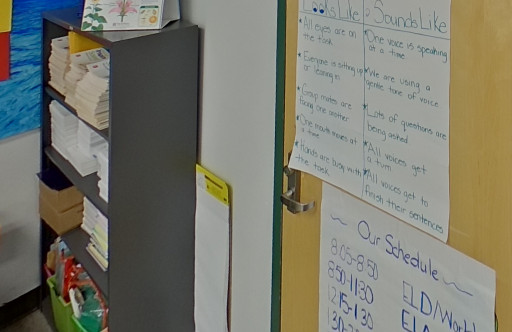 Looks Like
Sounds Like
* All eyes are on
the task
* Everyone is sitting up
or leaning in
* Group mates are
facing one another
* One mouth moves at
a time
* Hands are busy with
the task
* One voice is speaking
at a time
* We are using a
gentle tone of voice
* Lots of questions are
being asked
* All voices get
a turn
* All voices get to
finish their sentences
~ Our Schedule ~
8:05-8:50
8:50-11:30
12:15-1:30
1:30-
ELD/